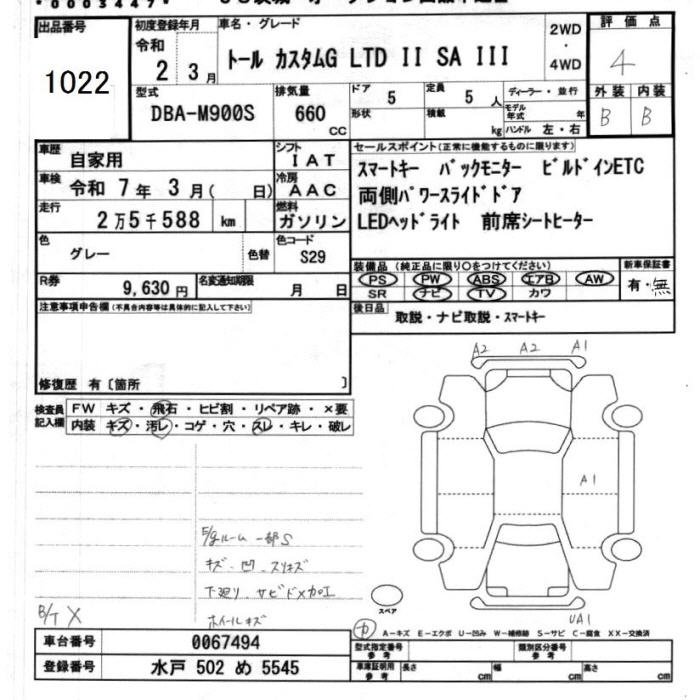 *0003447*
出品番号 初度登録年月 車名・グレード 2WD・4WD 評価点
1022 令和 2 3月 トール カスタムG LTD II SA III 4
型式 排気量 ドア 5 定員 5人 ディーラー・並行 外装 内装
DBA-M900S 660cc 形状 積載 kg モデル年式 年 ハンドル 左・右 B B
車歴 自家用 シフト IAT セールスポイント(正常に機能するものに限ります)
車検 令和 7年 3月( 日) 冷房 AAC スマートキー バックモニター ビルドインETC
走行 2万5千588 km 燃料 ガソリン 両側パワースライドドア
LEDヘッドライト 前席シートヒーター
色 グレー 色替 色コード S29
装備品(純正品に限り○をつけてください) 新車保証書
PS PW ABS エアB AW 有・無
SR ナビ TV カワ
R券 9,630円 名変通知期限 月 日
後日品 取説・ナビ取説・スマートキー
注意事項申告欄(不具合内容等は具体的に記入して下さい)
修復歴 有〔箇所 〕
検査員記入欄 FW キズ・飛石・ヒビ割・リペア跡・×要
内装 キズ・汚レ・コゲ・穴・スレ・キレ・破レ
A2 A2 A1
A1
E/gルーム 一部S
キズ・凹・スリキズ
下廻り・サビド×加工
ホイールキズ
B/T X
スペア
UA1
A-キズ E-エクボ U-凹み W-補修跡 S-サビ C-腐食 XX-交換済
車台番号 0067494
型式指定番号 参考 類別区分番号 参考
登録番号 水戸 502 め 5545
車庫証明用 参考 長さ cm 幅 cm 高さ cm